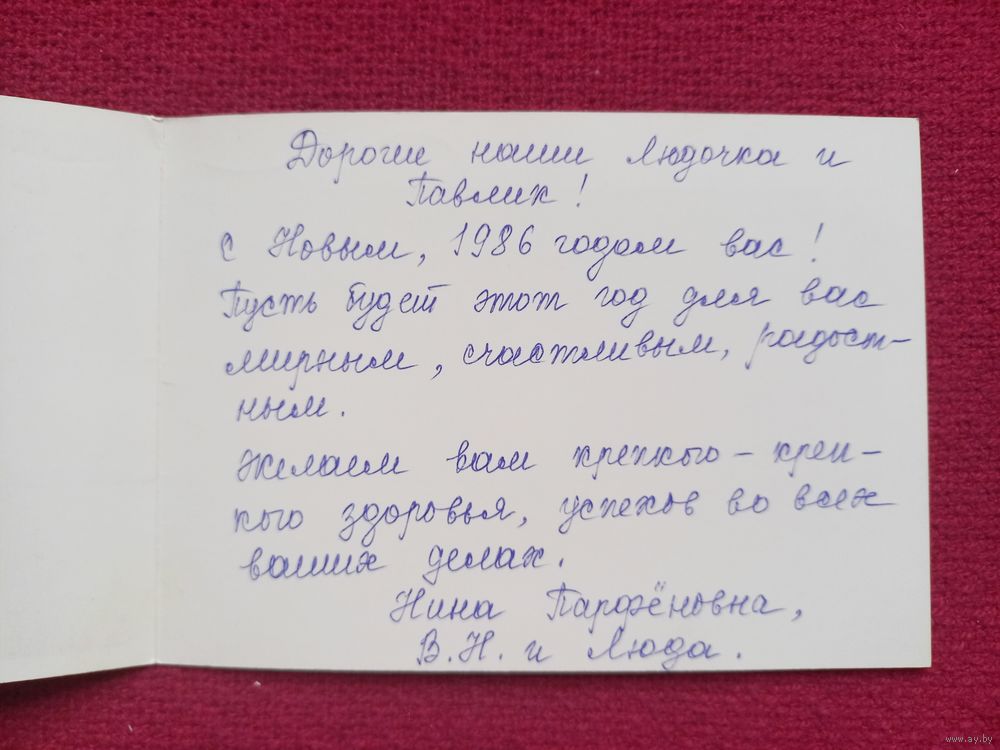 Дорогие наши Людочка и
Павлик!
С Новым, 1986 годом вас!
Пусть будет этот год для вас
мирным, счастливым, радост-
ным.
Желаем вам крепкого-креп-
кого здоровья, успехов во всех
ваших делах.
Нина Парфёновна,
В.Н. и Люда.
www.ay.by